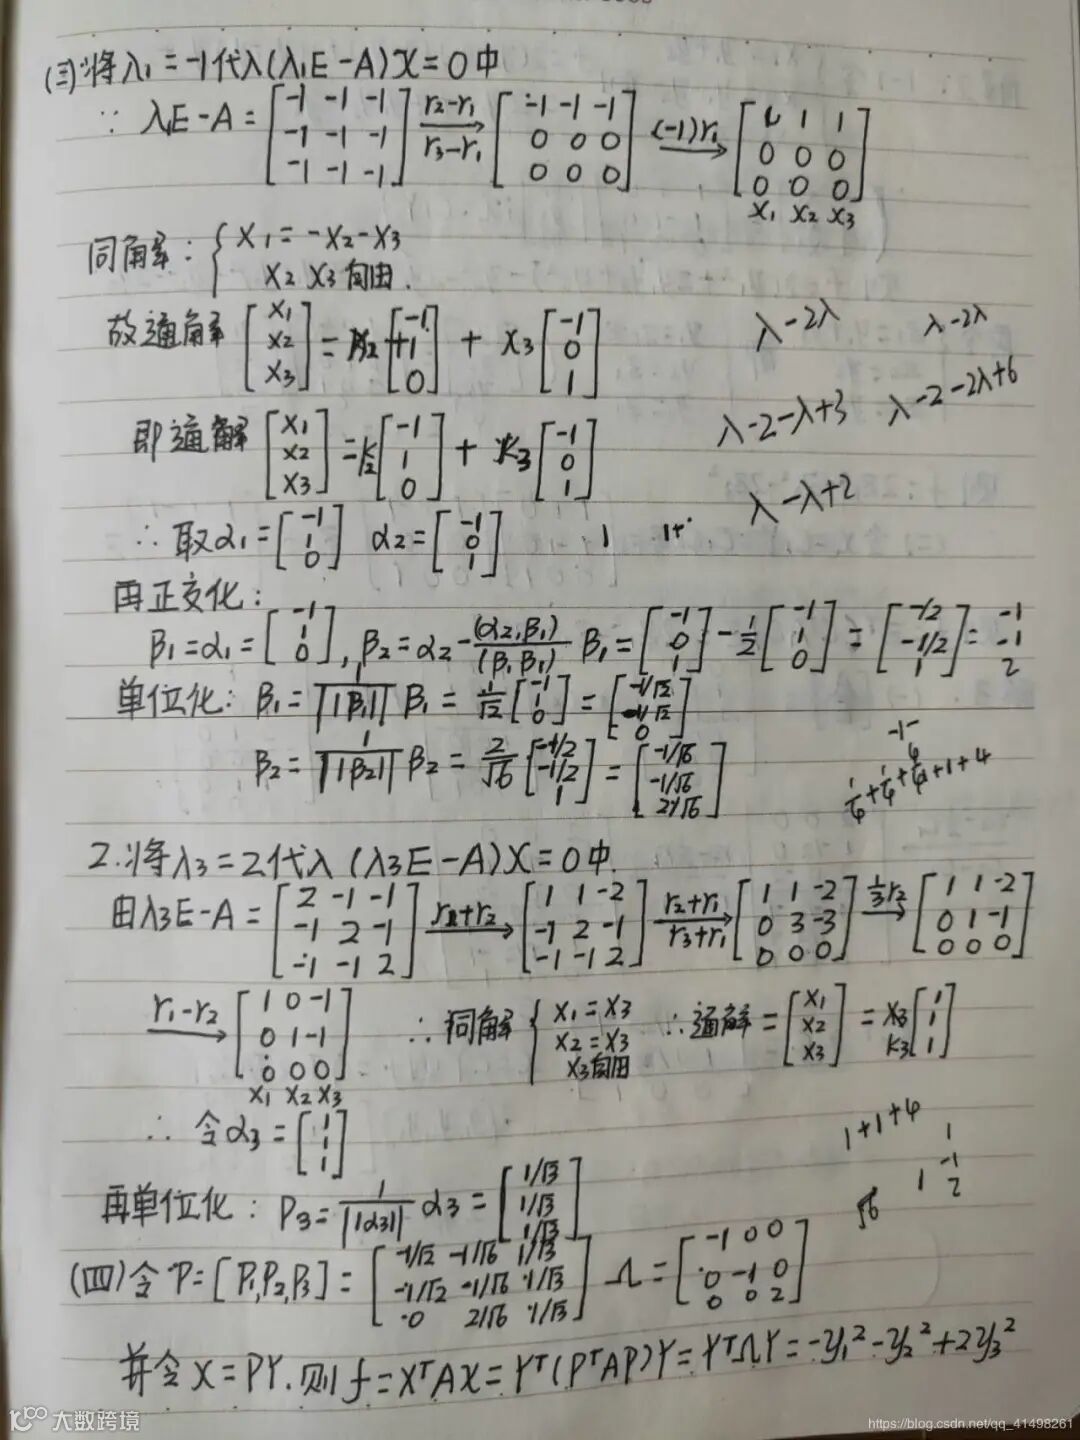 (三)将λ₁=-1代入(λ₁E-A)X=0中
∵ λ₁E-A=[-1 -1 -1; -1 -1 -1; -1 -1 -1] r₂-r₁ r₃-r₁ → [-1 -1 -1; 0 0 0; 0 0 0] (-1)r₁ → [1 1 1; 0 0 0; 0 0 0]
x₁ x₂ x₃
同解:{x₁=-x₂-x₃
x₂ x₃自由.
故通解[x₁; x₂; x₃]=x₂[-1; +1; 0]+x₃[-1; 0; 1]
λ-2λ λ-2λ
λ-2-λ+3 λ-2-2λ+6
即通解[x₁; x₂; x₃]=k₂[-1; 1; 0]+k₃[-1; 0; 1]
λ-λ+2
∴取α₁=[-1; 1; 0] α₂=[-1; 0; 1] 1 1+
再正交化:
β₁=α₁=[-1; 1; 0], β₂=α₂-(α₂,β₁)/(β₁,β₁) β₁=[-1; 0; 1]-1/2[-1; 1; 0]=[-1/2; -1/2; 1]= -1 -1 2
单位化: β₁=1/||β₁|| β₁=1/√2[-1; 1; 0]=[-1/√2; -1/√2; 0]
β₂=1/||β₂|| β₂=2/√6[-1/2; -1/2; 1]=[-1/√6; -1/√6; 2/√6]
+1+4
2.将λ₃=2代入(λ₃E-A)X=0中.
由λ₃E-A=[2 -1 -1; -1 2 -1; -1 -1 2] r₁+r₂ → [1 1 -2; -1 2 -1; -1 -1 2] r₂+r₁ r₃+r₁ → [1 1 -2; 0 3 -3; 0 0 0] 1/3r₂ → [1 1 -2; 0 1 -1; 0 0 0]
r₁-r₂ → [1 0 -1; 0 1 -1; 0 0 0] ∴同解{x₁=x₃ x₂=x₃ x₃自由 ∴通解=[x₁; x₂; x₃]=x₃ k₃[1; 1; 1]
x₁ x₂ x₃
∴令α₃=[1; 1; 1]
1+1+4 1 -1 1 2
再单位化: P₃=1/||α₃|| α₃=[1/√3; 1/√3; 1/√3] √6
(四)令P=[P₁,P₂,P₃]=[-1/√2 -1/√6 1/√3; -1/√2 -1/√6 1/√3; 0 2/√6 1/√3] Λ=[-1 0 0; 0 -1 0; 0 0 2]
并令X=PY.则f=XᵀAX=Yᵀ(PᵀAP)Y=YᵀΛY=-y₁²-y₂²+2y₃²
大数跨境
https://blog.csdn.net/qq_41498261